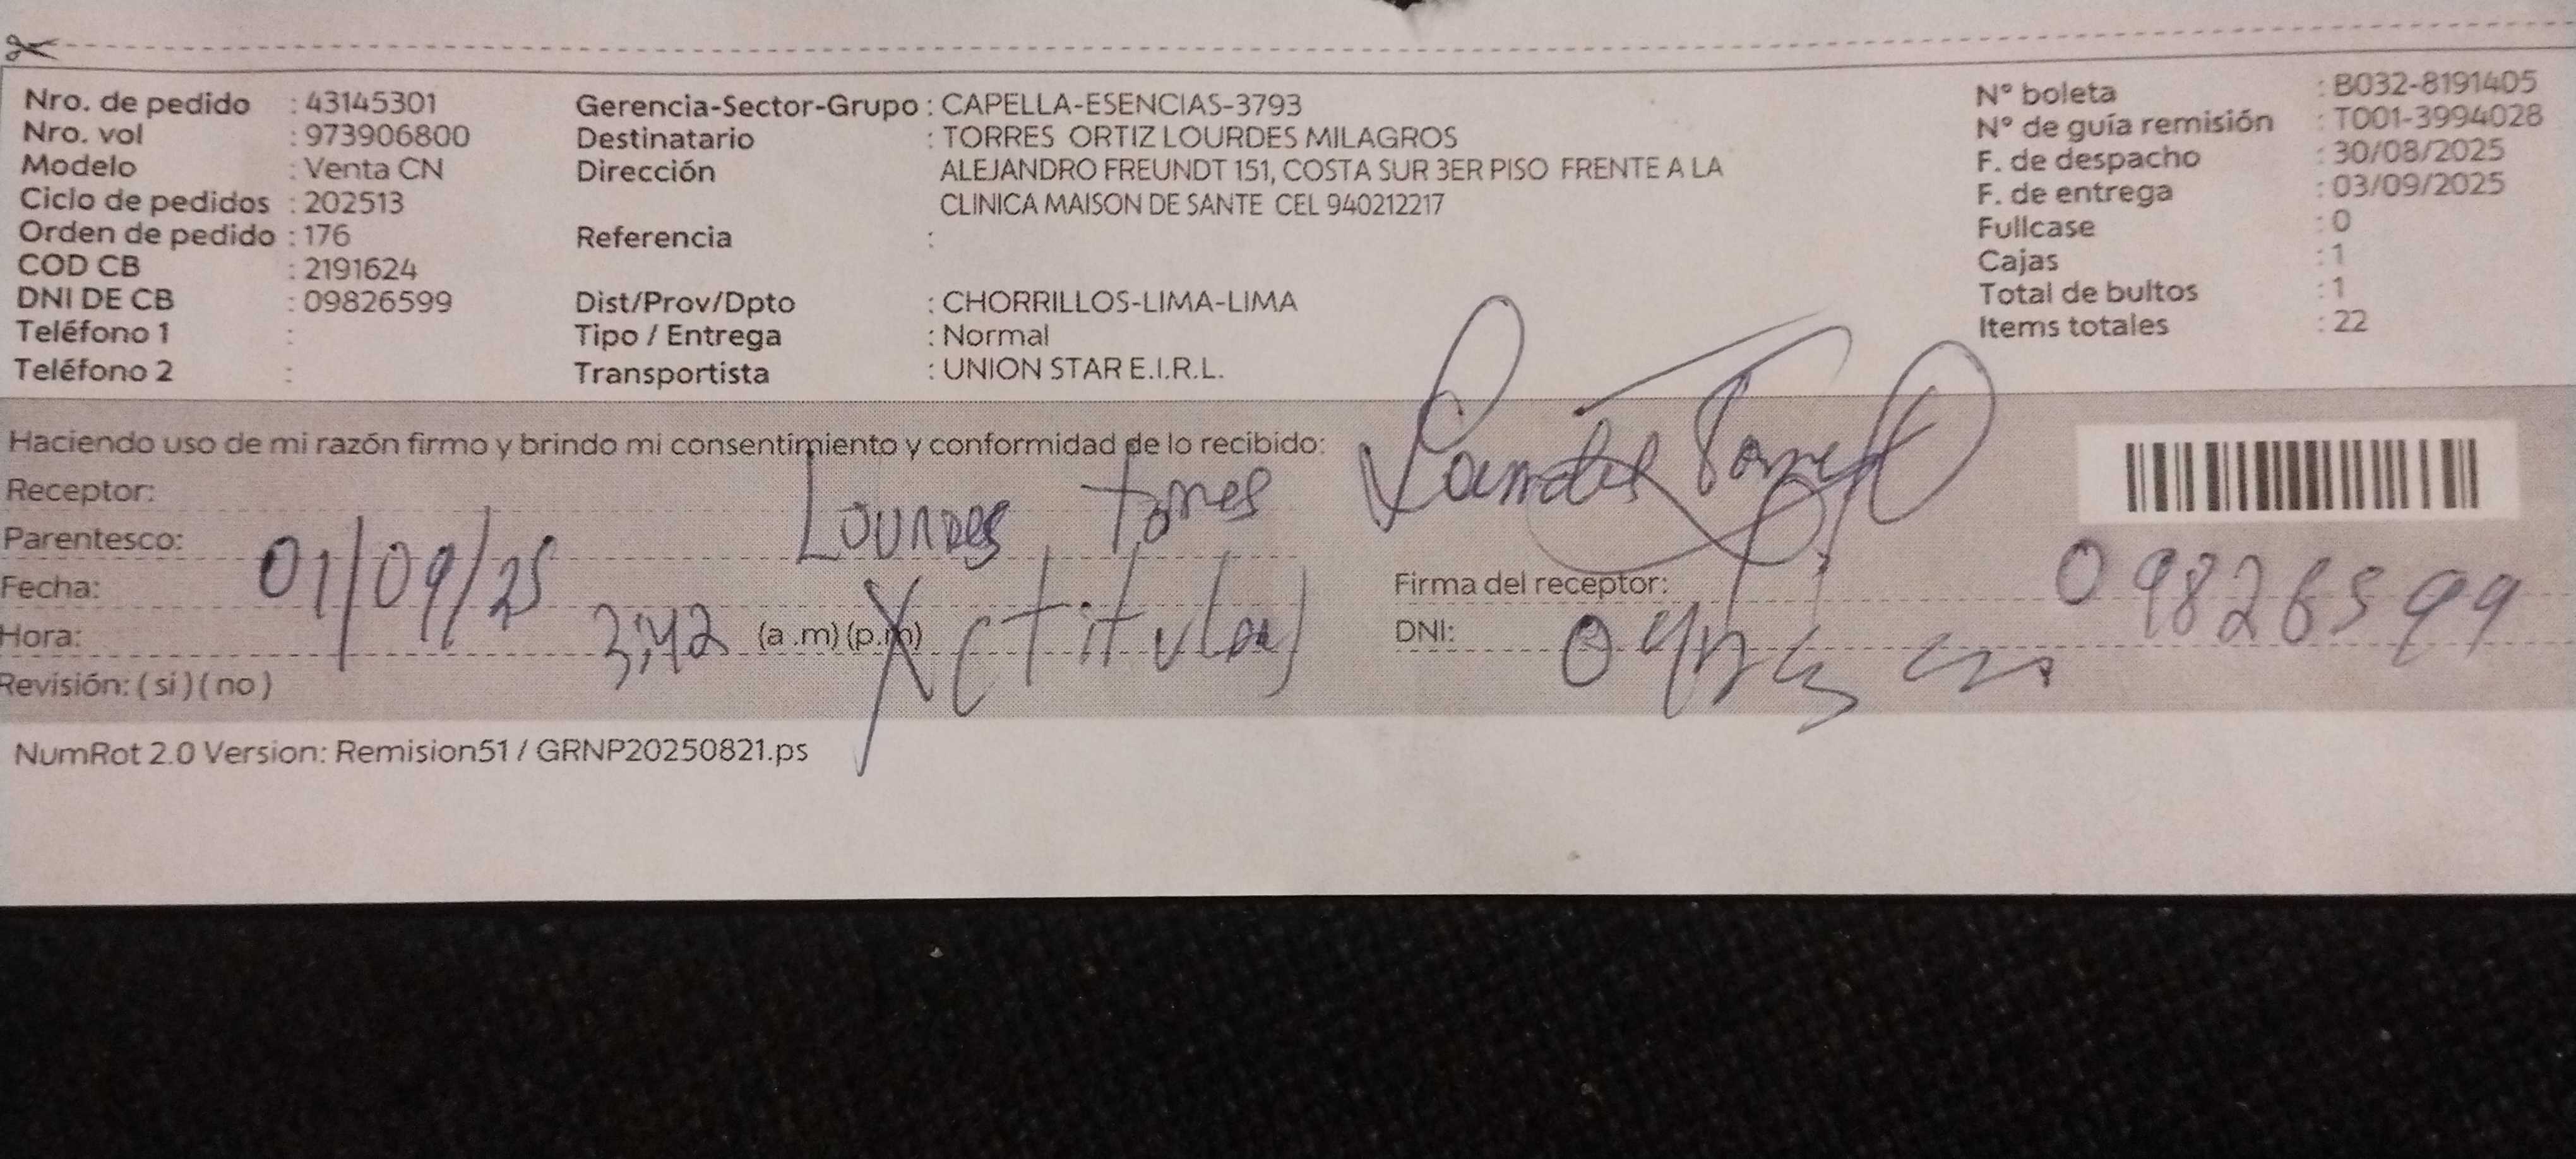 Nro. de pedido : 43145301
Nro. vol : 973906800
Modelo : Venta CN
Ciclo de pedidos : 202513
Orden de pedido : 176
COD CB : 2191624
DNI DE CB : 09826599
Teléfono 1 :
Teléfono 2 :
Gerencia-Sector-Grupo : CAPELLA-ESENCIAS-3793
Destinatario : TORRES ORTIZ LOURDES MILAGROS
Dirección ALEJANDRO FREUNDT 151, COSTA SUR 3ER PISO FRENTE A LA
CLINICA MAISON DE SANTE CEL 940212217
Referencia :
Dist/Prov/Dpto : CHORRILLOS-LIMA-LIMA
Tipo / Entrega : Normal
Transportista : UNION STAR E.I.R.L.
N° boleta : B032-8191405
N° de guía remisión : T001-3994028
F. de despacho : 30/08/2025
F. de entrega : 03/09/2025
Fullcase : 0
Cajas : 1
Total de bultos : 1
Items totales : 22
Haciendo uso de mi razón firmo y brindo mi consentimiento y conformidad de lo recibido:
Receptor: Lourdes Torres
Parentesco: (titular)
Fecha: 01/09/25
Hora: 3:42 (a .m) (p.m)
Revisión: ( sí ) ( no )
Lourdes Torres O
Firma del receptor:
DNI: 09826599
NumRot 2.0 Version: Remision51 / GRNP20250821.ps